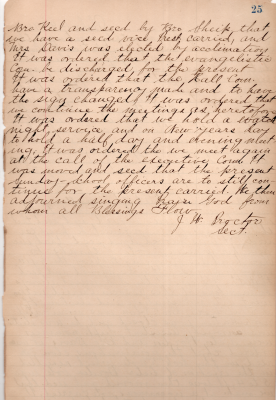 25
Bro Keil and secd by Bro Sheik that
we have a secd vice Prest, carried, and
Mrs Davis was elected by acclamation
It was ordered that the evangelistic
Com. be discharged for the present
It was ordered that the hall Com,
have a transparency made and to have
the sign changed. It was ordered that
we continue the meetings as heretofore
It was ordered that we hold a
night service, and on New years day
to hold a half day and evening meet
ing. It was ordered the we meet again
at the call of the executive Com. It
was moved and secd that the present
Sunday-school officers are to still con
tinue for the present, carried. We then
adjourned singing Praise God from
whom all Blessings Flow.
J. W. Proctor
Sect.